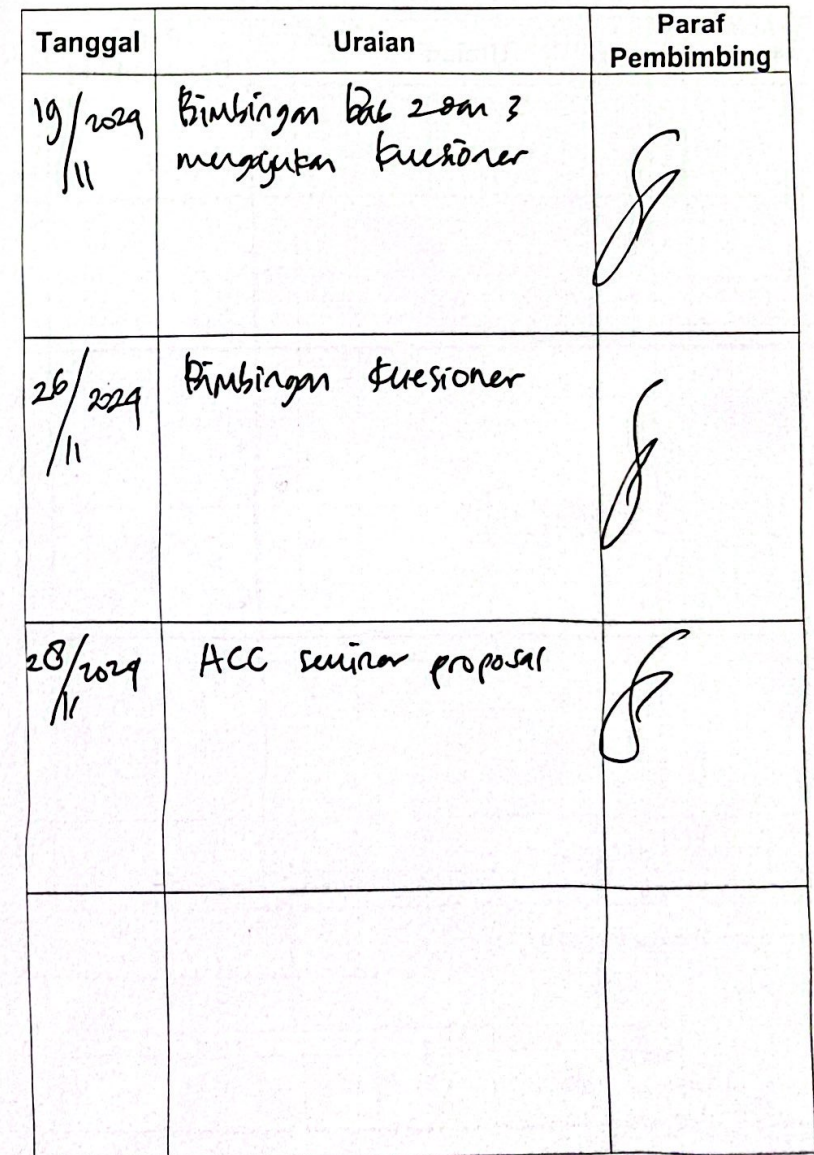 Tanggal Uraian Paraf Pembimbing
19/11 2024 Bimbingan bab 2 dan 3
mengajukan kuesioner
26/11 2024 Bimbingan kuesioner
28/11 2024 ACC seminar proposal